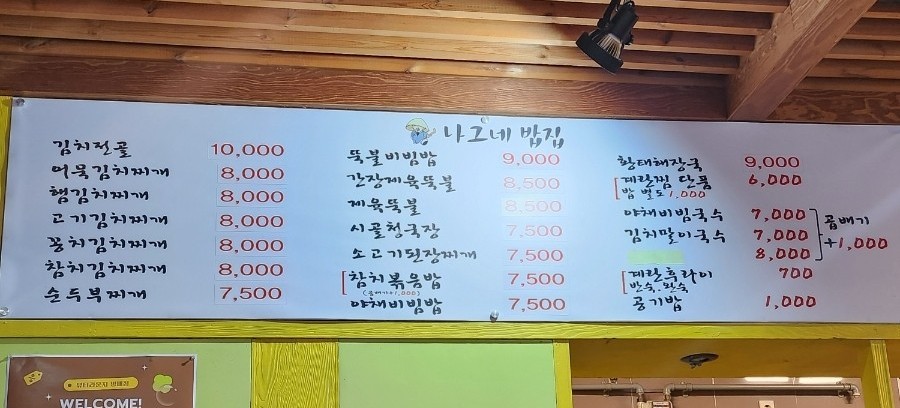 나그네 밥집
김치전골 10,000
어묵김치찌개 8,000
햄김치찌개 8,000
고기김치찌개 8,000
꽁치김치찌개 8,000
참치김치찌개 8,000
순두부찌개 7,500
뚝불비빔밥 9,000
간장제육뚝불 8,500
제육뚝불 8,500
시골청국장 7,500
소고기된장찌개 7,500
참치볶음밥 7,500
(곱배기+1,000)
야채비빔밥 7,500
황태해장국 9,000
계란찜 단품 6,000
밥 별도 1,000
야채비빔국수 7,000
김치말이국수 7,000
8,000
곱배기
+1,000
계란후라이 700
반숙, 완숙
공기밥 1,000
WELCOME!